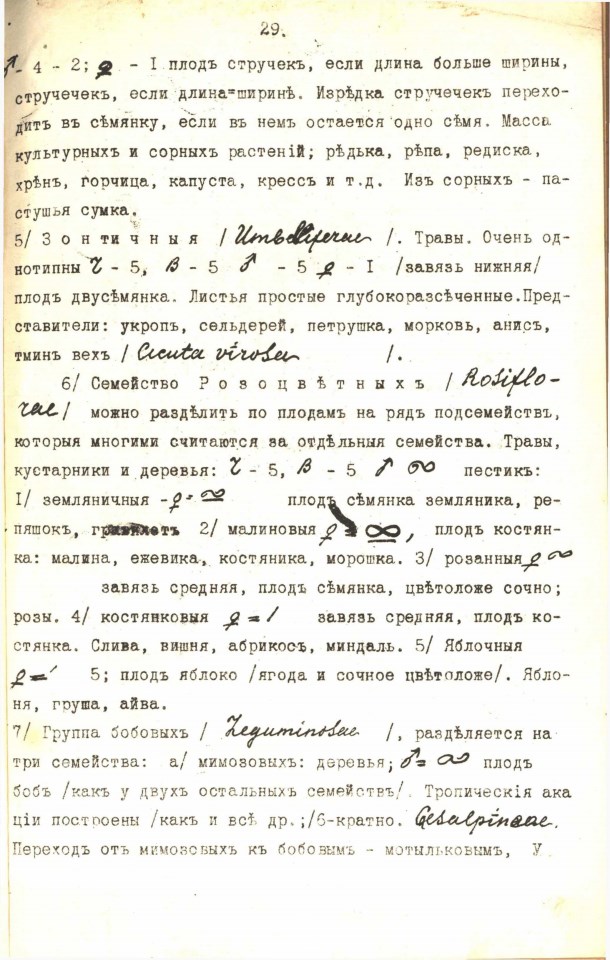 29.
♂- 4 - 2; ♀ - I плодъ стручекъ, если длина больше ширины,
стручечекъ, если длина=ширинѣ. Изрѣдка стручечекъ перехо-
дитъ въ сѣмянку, если въ немъ остается одно сѣмя. Масса
культурныхъ и сорныхъ растеній; рѣдька, рѣпа, редиска,
хрѣнъ, горчица, капуста, крессъ и т.д. Изъ сорныхъ - па-
стушья сумка.
5/ З о н т и ч н ы я / Umbelliferae /. Травы. Очень од-
нотипны Ч - 5, В - 5 ♂ - 5 ♀ - I /завязь нижняя/
плодъ двусѣмянка. Листья простые глубокоразсѣченные.Пред-
ставители: укропъ, сельдерей, петрушка, морковь, анисъ,
тминъ вехъ / Cicuta virosa /.
6/ Семейство Р о з о ц в ѣ т н ы х ъ / Rosiflo-
rae/ можно раздѣлить по плодамъ на рядъ подсемействъ,
которыя многими считаются за отдѣльныя семейства. Травы,
кустарники и деревья: Ч - 5, В - 5 ♂ ∞ пестикъ:
I/ земляничныя -♀=∞ плодъ сѣмянка земляника, ре-
пяшокъ, 2/ малиновыя ♀ = ∞, плодъ костян-
ка: малина, ежевика, костяника, морошка. 3/ розанныя ♀ ∞
завязь средняя, плодъ сѣмянка, цвѣтоложе сочно;
розы. 4/ костянковыя ♀ = 1 завязь средняя, плодъ ко-
стянка. Слива, вишня, абрикосъ, миндаль. 5/ Яблочныя
♀ = 5; плодъ яблоко /ягода и сочное цвѣтоложе/. Ябло-
ня, груша, айва.
7/ Группа бобовыхъ / Leguminosae /, раздѣляется на
три семейства: а/ мимозовыхъ: деревья; ♂= ∞ плодъ
бобъ /какъ у двухъ остальныхъ семействъ/. Тропическія ака
ціи построены /какъ и всѣ др.;/6-кратно. Cesalpineae.
Переходъ отъ мимозовыхъ къ бобовымъ - мотыльковымъ, У